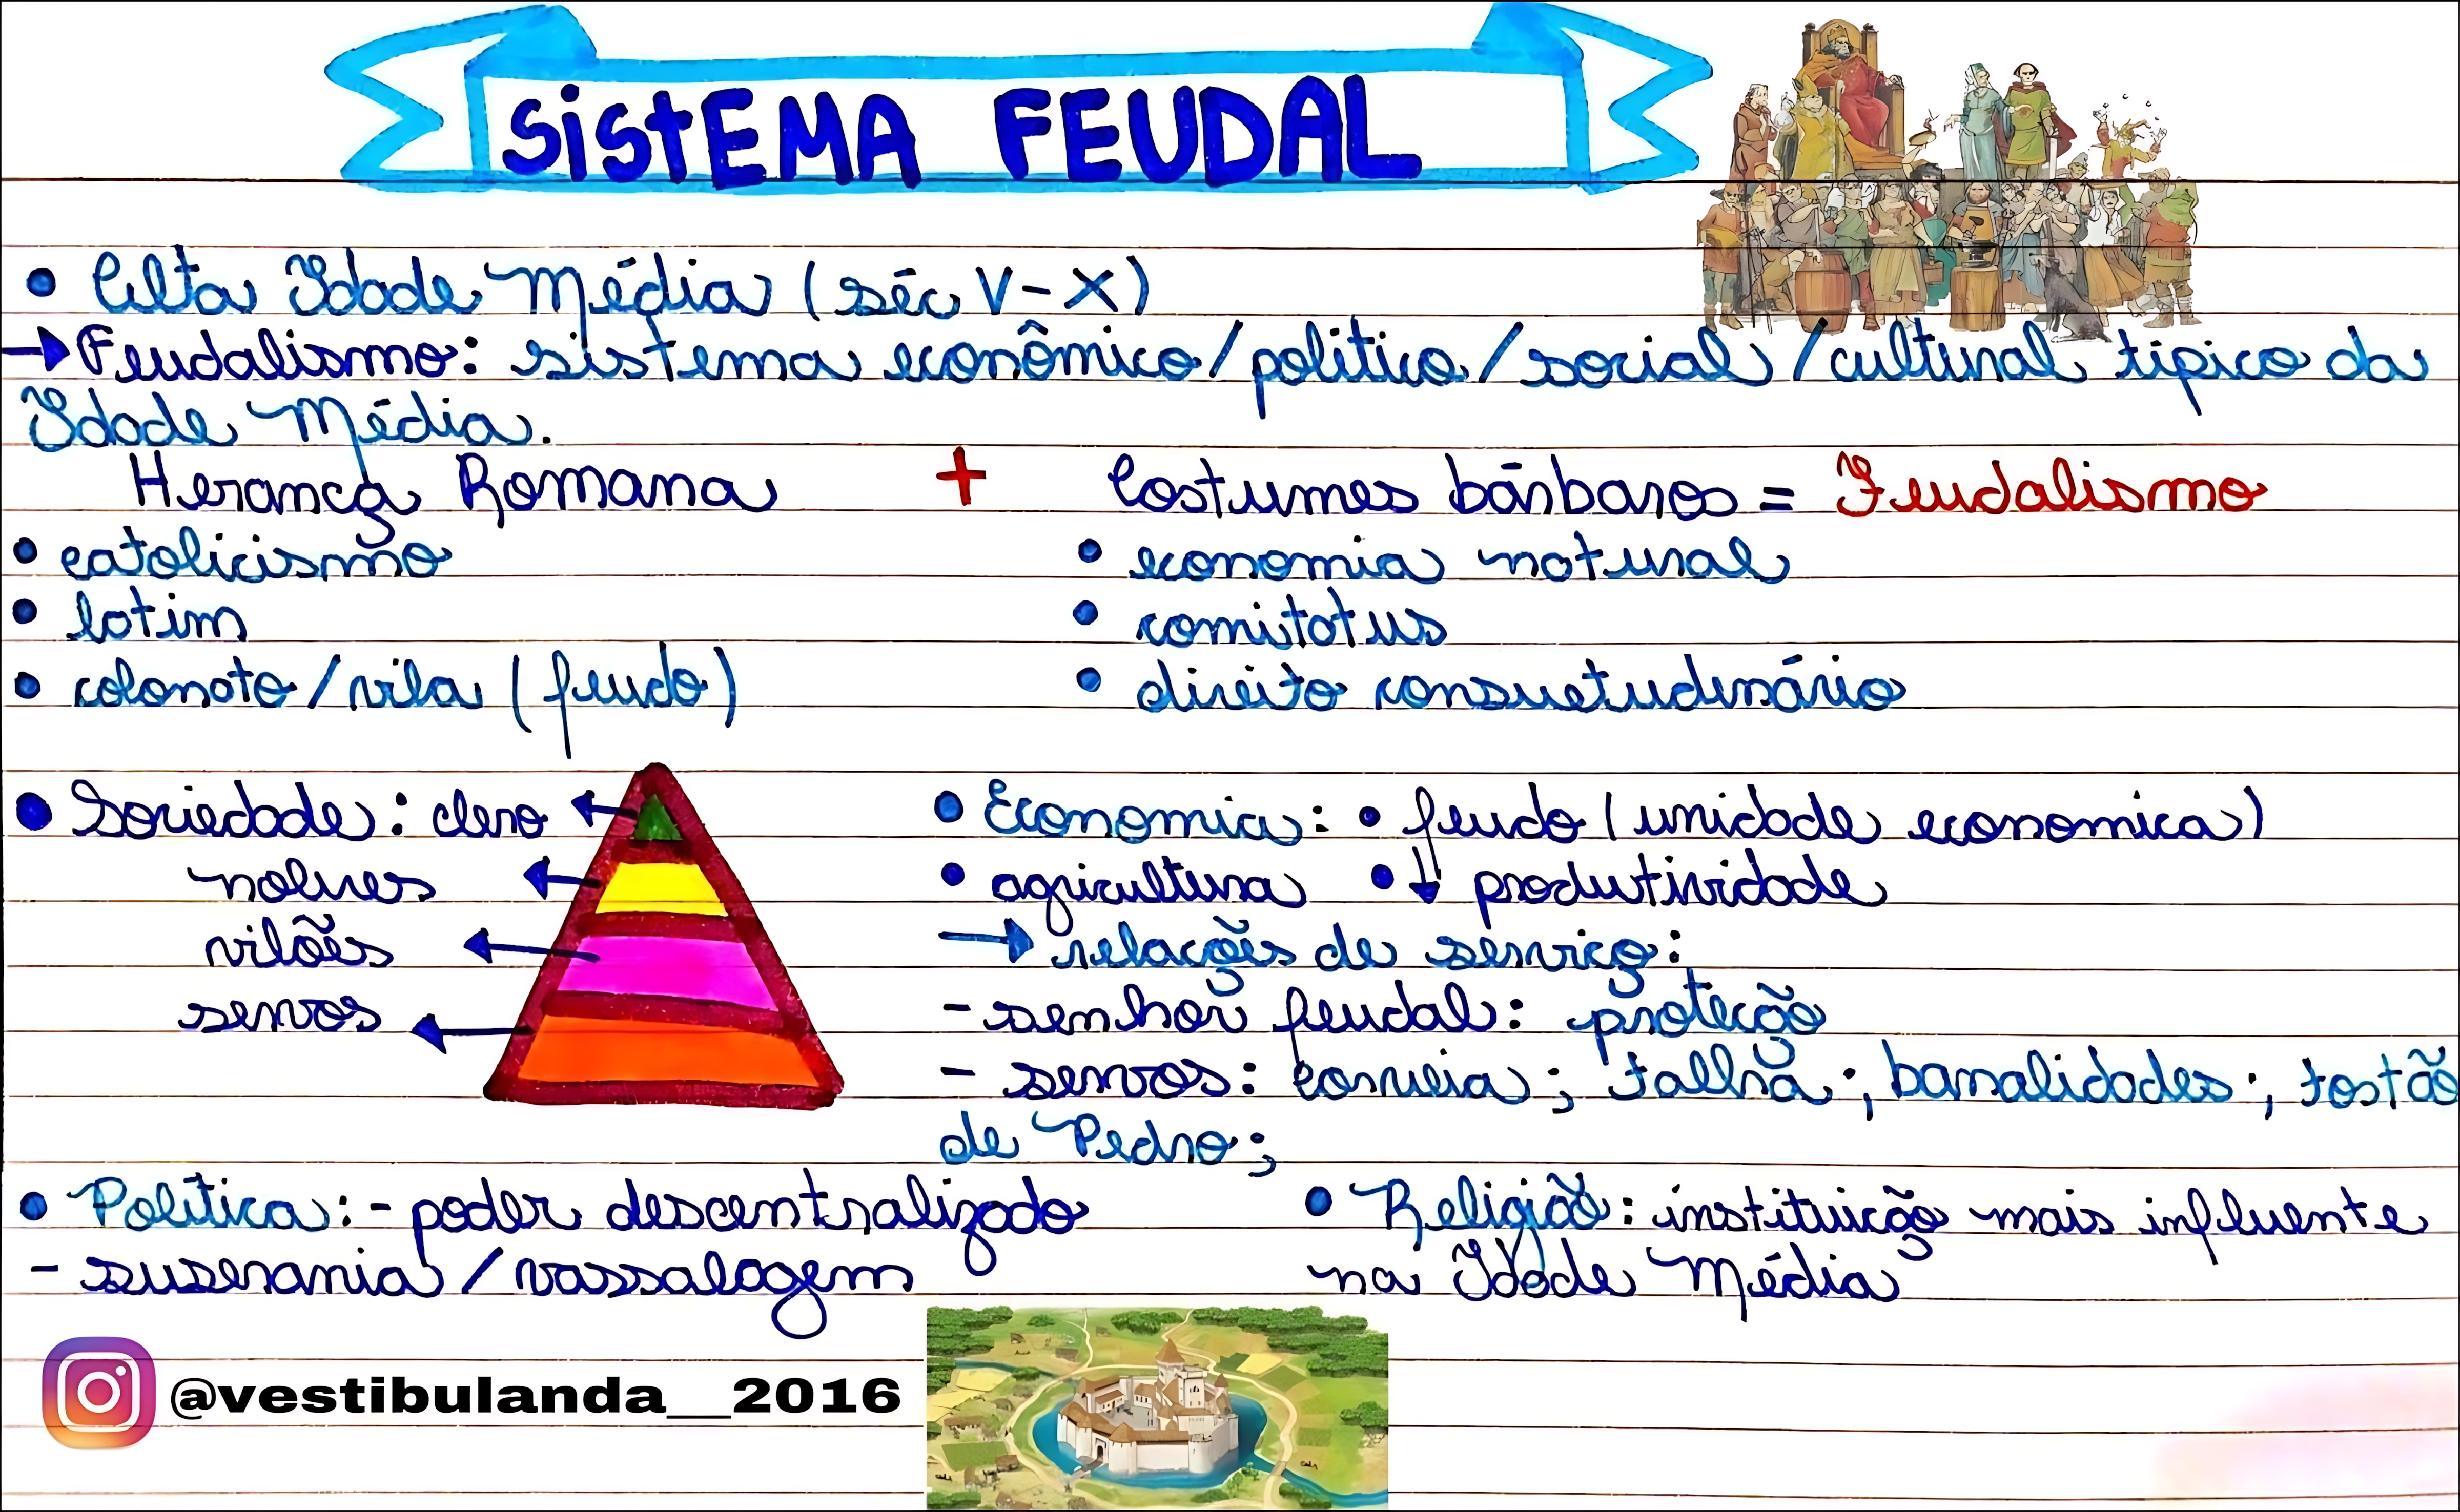 SiStEMA FEUDAL
• Alta Idade Média (séc V-X)
→ Feudalismo: sistema econômico/político/social/cultural típico da
Idade Média.
Herança Romana + Costumes bárbaros = Feudalismo
• catolicismo
• latim
• colonato/vila (feudo)
• economia natural
• comitatus
• direito consuetudinário
• Sociedade: clero
nobres
vilões
servos
• Economia: • feudo (unidade economica)
• agricultura • ↓ produtividade
→ relações de serviço:
- senhor feudal: proteção
- servos: corveia; talha; banalidades; tostão
de Pedro;
• Política: - poder descentralizado
- suserania/vassalagem
• Religião: instituição mais influente
na Idade Média
@vestibulanda__2016